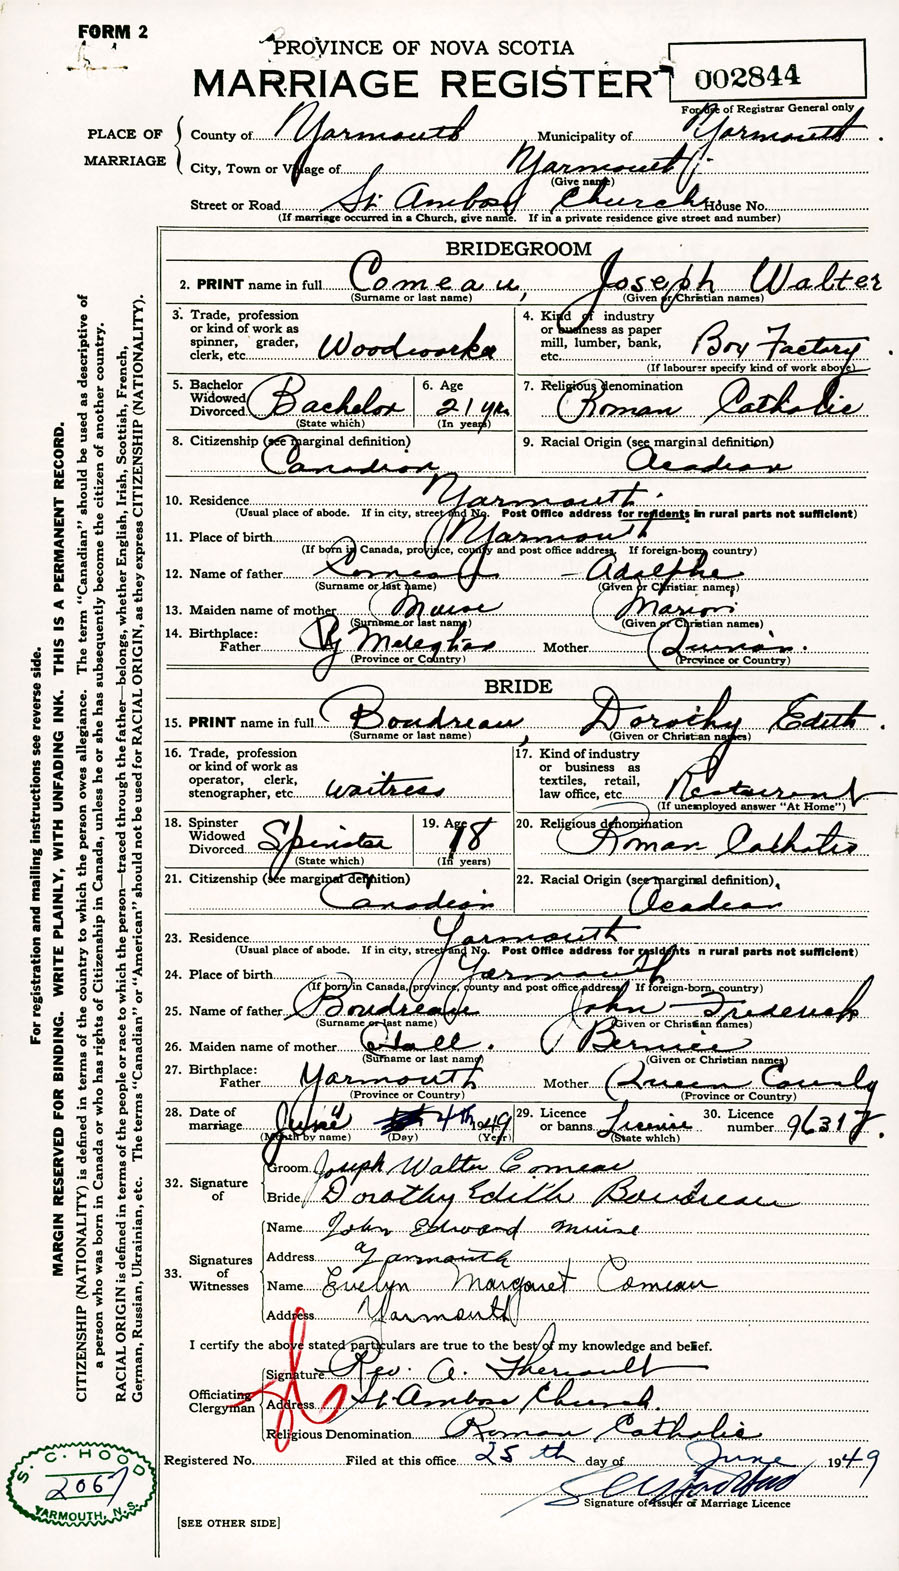 FORM 2
PROVINCE OF NOVA SCOTIA
MARRIAGE REGISTER
002844
For use of Registrar General only
PLACE OF MARRIAGE
County of Yarmouth Municipality of Yarmouth.
City, Town or Village of Yarmouth
(Give name)
Street or Road St. Ambose Church House No.
(If marriage occurred in a Church, give name. If in a private residence give street and number)
BRIDEGROOM
2. PRINT name in full Comeau, Joseph Walter
(Surname or last name) (Given or Christian names)
3. Trade, profession or kind of work as spinner, grader, clerk, etc. Woodworker
4. Kind of industry or business as paper mill, lumber, bank, etc. Box Factory.
(If labourer specify kind of work above)
5. Bachelor Widowed Divorced Bachelor
(State which)
6. Age 21 yrs
(In years)
7. Religious denomination Roman Catholic
8. Citizenship (see marginal definition) Canadian
9. Racial Origin (see marginal definition) Acadian
10. Residence Yarmouth.
(Usual place of abode. If in city, street and No. Post Office address for residents in rural parts not sufficient)
11. Place of birth Yarmouth
(If born in Canada, province, county and post office address. If foreign-born, country)
12. Name of father Comeau - Adolphe
(Surname or last name) (Given or Christian names)
13. Maiden name of mother Muise Marion
(Surname or last name) (Given or Christian names)
14. Birthplace: Father Meteghan Mother Quinan.
(Province or Country) (Province or Country)
BRIDE
15. PRINT name in full Boudreau, Dorothy Edith.
(Surname or last name) (Given or Christian names)
16. Trade, profession or kind of work as operator, clerk, stenographer, etc. waitress
17. Kind of industry or business as textiles, retail, law office, etc. Restaurant
(If unemployed answer "At Home")
18. Spinster Widowed Divorced Spinster
(State which)
19. Age 18
(In years)
20. Religious denomination Roman Catholic
21. Citizenship (see marginal definition) Canadian
22. Racial Origin (see marginal definition) Acadian
23. Residence Yarmouth
(Usual place of abode. If in city, street and No. Post Office address for residents n rural parts not sufficient)
24. Place of birth Yarmouth
(If born in Canada, province, county and post office address. If foreign-born, country)
25. Name of father Boudreau John Frederick
(Surname or last name) (Given or Christian names)
26. Maiden name of mother Hall. Bernice
(Surname or last name) (Given or Christian names)
27. Birthplace: Father Yarmouth Mother Queen County
(Province or Country) (Province or Country)
28. Date of marriage June 4th 1949
(Month by name) (Day) (Year)
29. Licence or banns License
(State which)
30. Licence number 96317.
32. Signature of
Groom Joseph Walter Comeau
Bride Dorothy Edith Boudreau
33. Signatures of Witnesses
Name John Edward Muise
Address Yarmouth
Name Evelyn Margaret Comeau
Address Yarmouth
I certify the above stated particulars are true to the best of my knowledge and belief.
Officiating Clergyman
Signature Rev. A. Theriault
Address St. Ambose Church.
Religious Denomination Roman Catholic
Registered No. Filed at this office 25th day of June 1949
Signature of Issuer of Marriage Licence
[SEE OTHER SIDE]
For registration and mailing instructions see reverse side.
MARGIN RESERVED FOR BINDING. WRITE PLAINLY, WITH UNFADING INK. THIS IS A PERMANENT RECORD.
CITIZENSHIP (NATIONALITY) is defined in terms of the country to which the person owes allegiance. The term "Canadian" should be used as descriptive of
a person who was born in Canada or who has rights of Citizenship in Canada, unless he or she has subsequently become the citizen of another country.
RACIAL ORIGIN is defined in terms of the people or race to which the person—traced through the father—belongs, whether English, Irish, Scottish, French,
German, Russian, Ukrainian, etc. The terms "Canadian" or "American" should not be used for RACIAL ORIGIN, as they express CITIZENSHIP (NATIONALITY).
S. C. HOOD
2067
YARMOUTH, N.S.